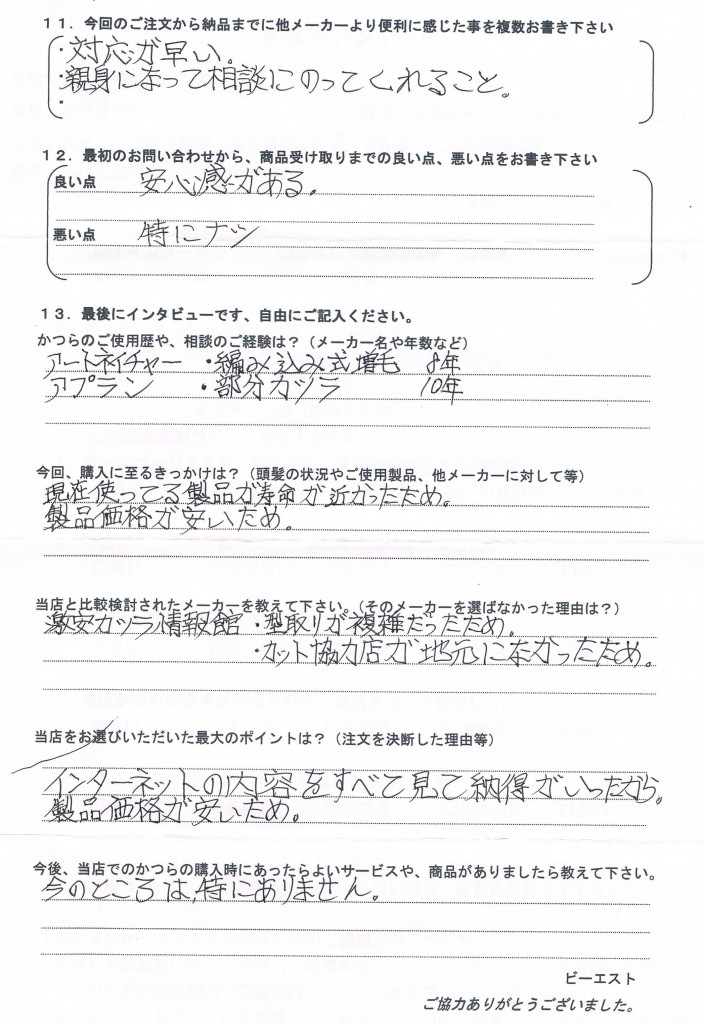 11．今回のご注文から納品までに他メーカーより便利に感じた事を複数お書き下さい
・対応が早い。
・親身になって相談にのってくれること。
・
12．最初のお問い合わせから、商品受け取りまでの良い点、悪い点をお書き下さい
良い点 安心感がある。
悪い点 特にナシ
13．最後にインタビューです、自由にご記入ください。
かつらのご使用歴や、相談のご経験は？（メーカー名や年数など）
アートネイチャー ・編み込み式増毛 8年
アプラン ・部分カツラ 10年
今回、購入に至るきっかけは？（頭髪の状況やご使用製品、他メーカーに対して等）
現在使ってる製品が寿命が近かったため。
製品価格が安いため。
当店と比較検討されたメーカーを教えて下さい。（そのメーカーを選ばなかった理由は？）
激安カツラ情報館・型取りが複雑だったため。
・カット協力店が地元になかったため。
当店をお選びいただいた最大のポイントは？（注文を決断した理由等）
インターネットの内容をすべて見て納得がいったから。
製品価格が安いため。
今後、当店でのかつらの購入時にあったらよいサービスや、商品がありましたら教えて下さい。
今のところは、特にありません。
ビーエスト
ご協力ありがとうございました。